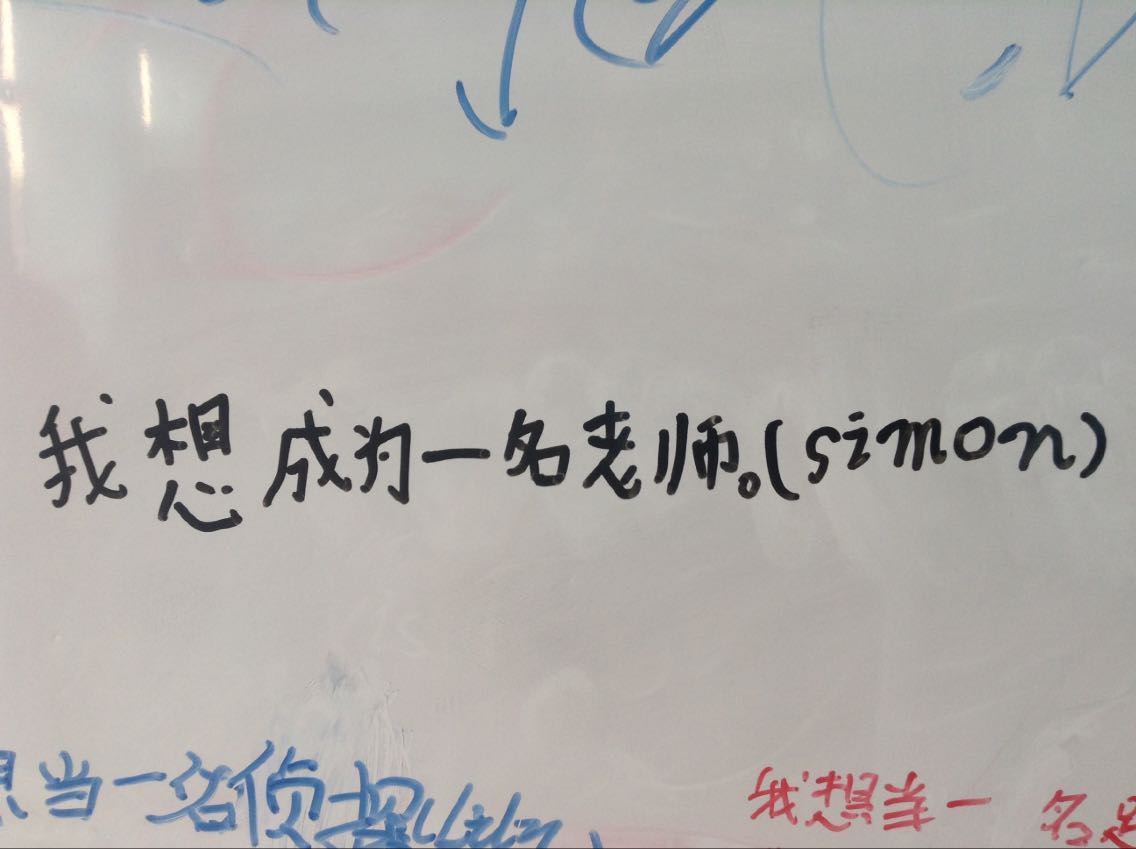 我想成为一名老师。(simon)
想当一名侦探
我想当一名